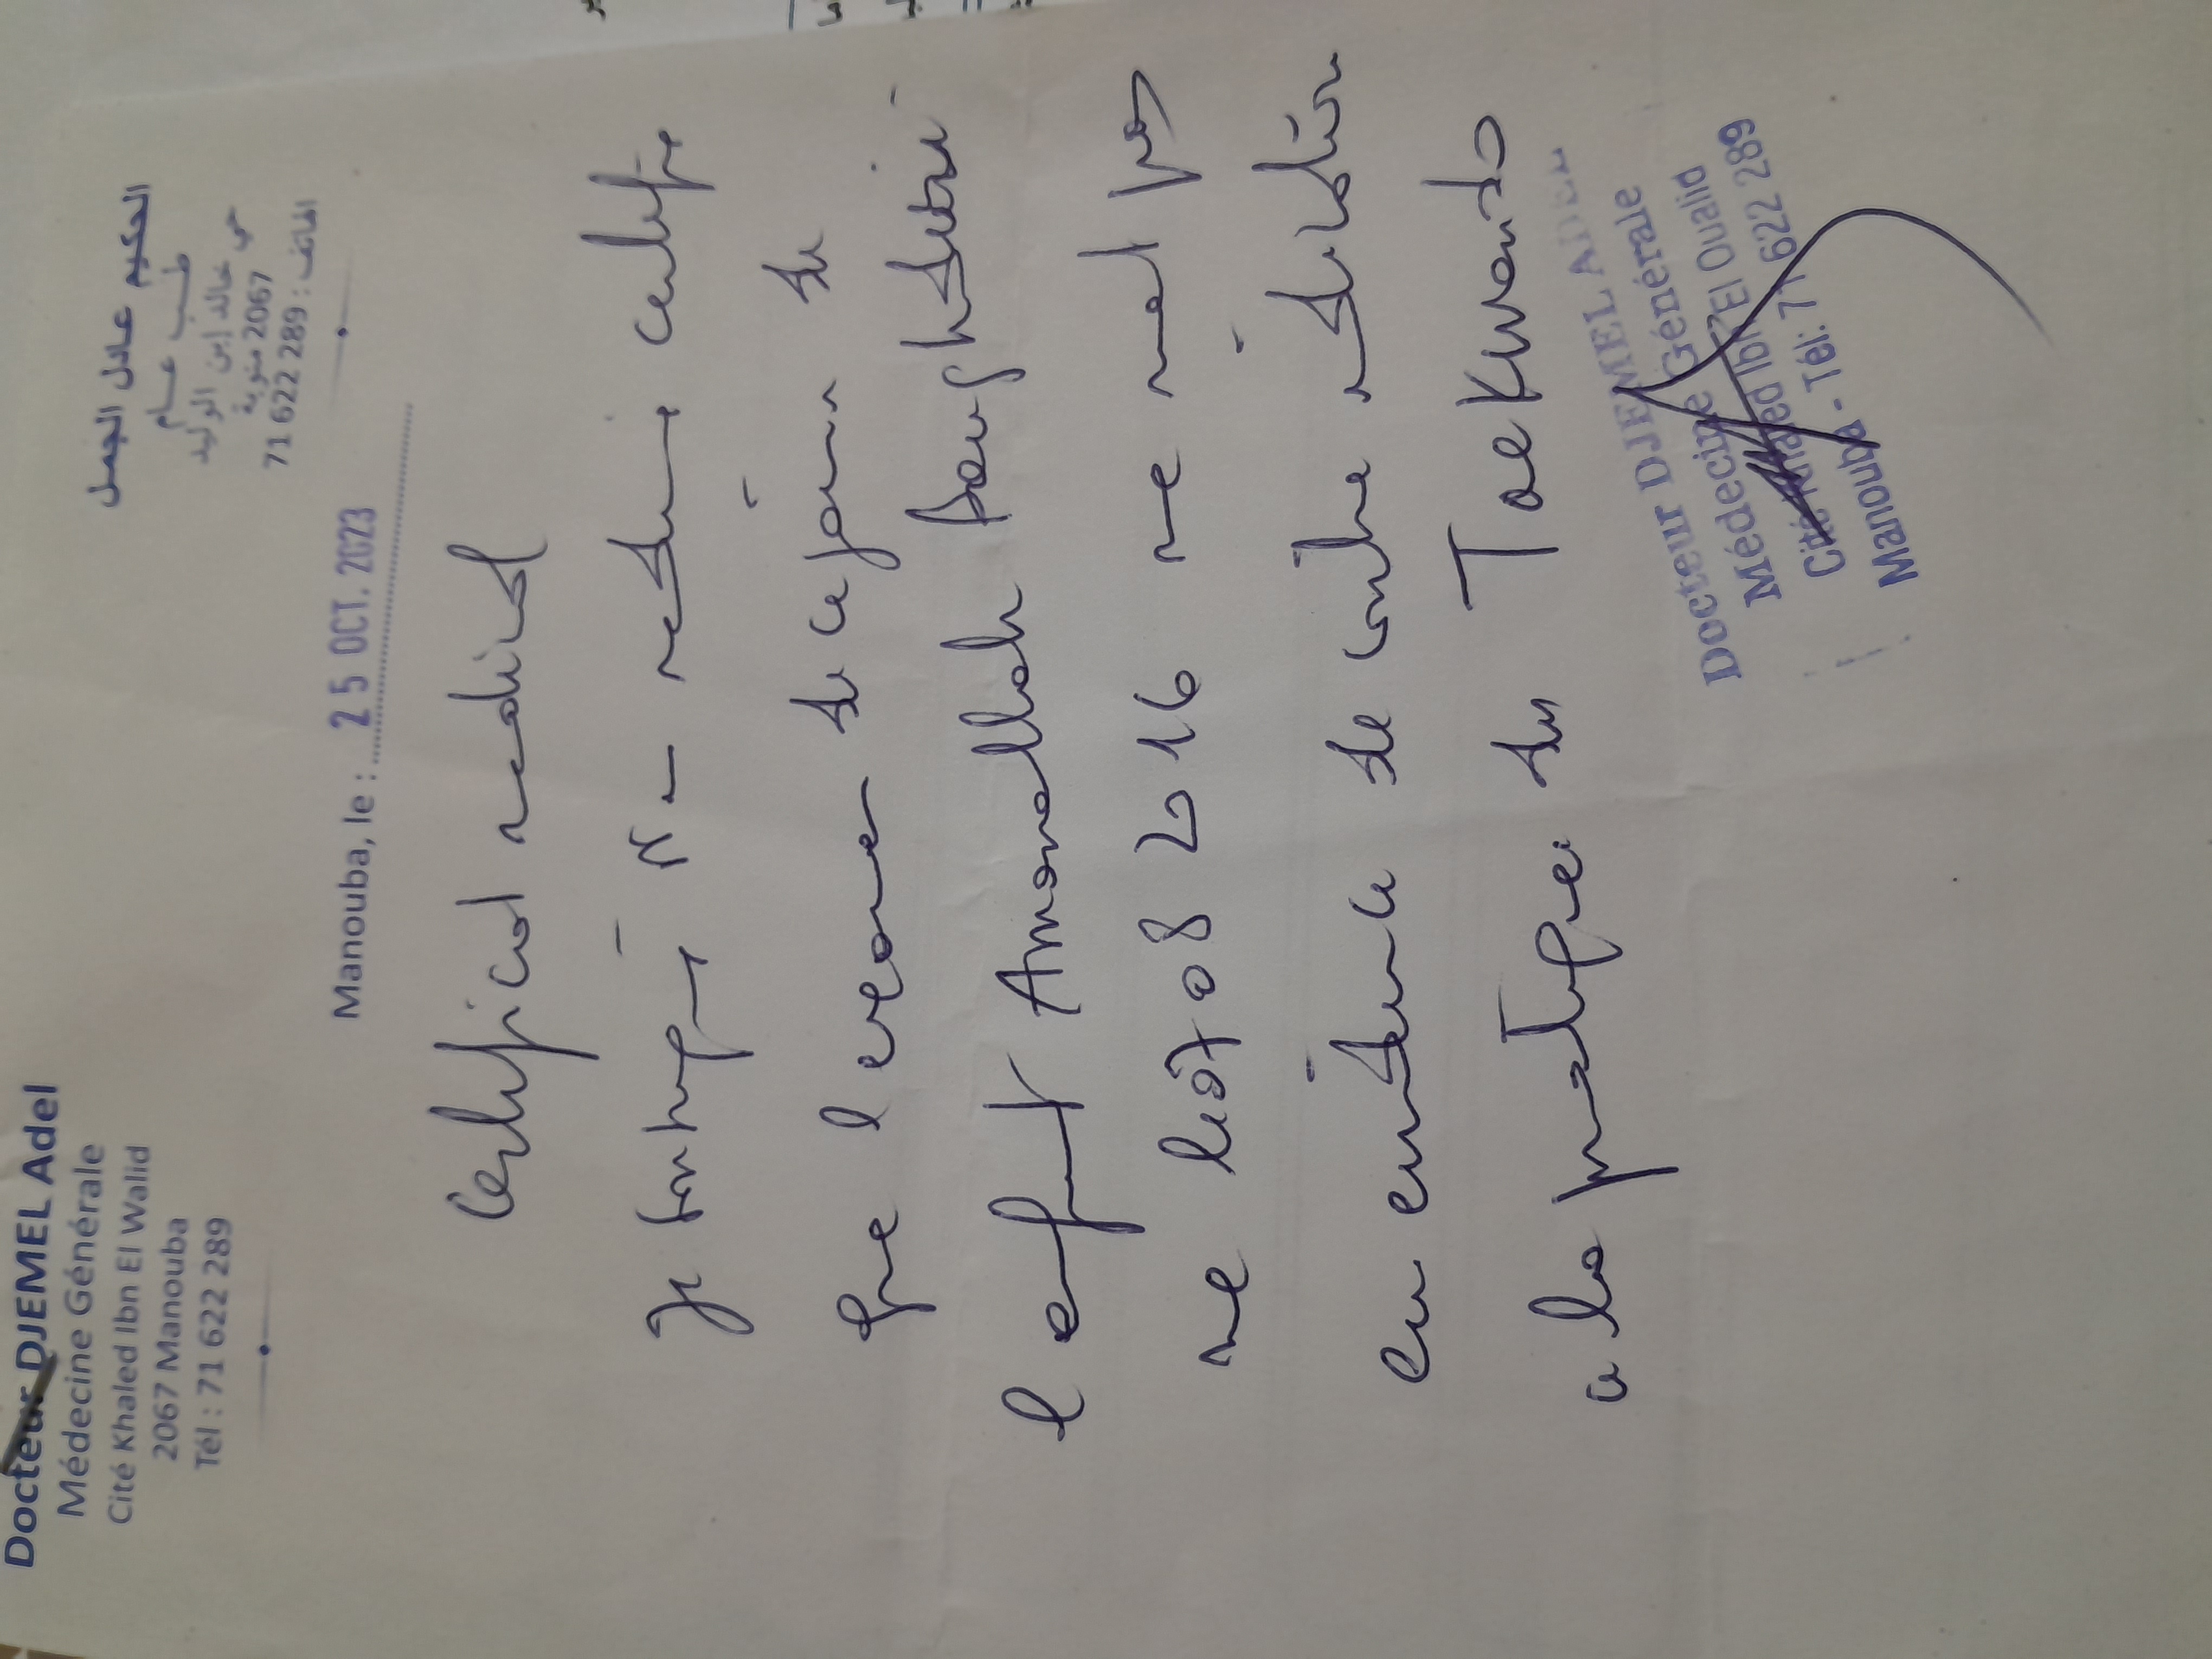 Docteur DJEMEL Adel
Médecine Générale
Cité Khaled Ibn El Walid
2067 Manouba
Tél : 71 622 289
الحكيم عادل الجمل
طب عام
حي خالد إبن الوليد
2067 منوبة
الهاتف : 289 622 71
Manouba, le : 25 OCT. 2023
Certificat medical
Je certifie
que l examen de ce jour de
l enfant Amanallah
ne le 07 08 2016 ne met pas
en evidence de contre indication
a la pratique du Taekwando
Docteur DJEMEL ADEL
Médecine Générale
Cité Khaled Ibn El Oualid
Manouba - Tél: 71 622 289